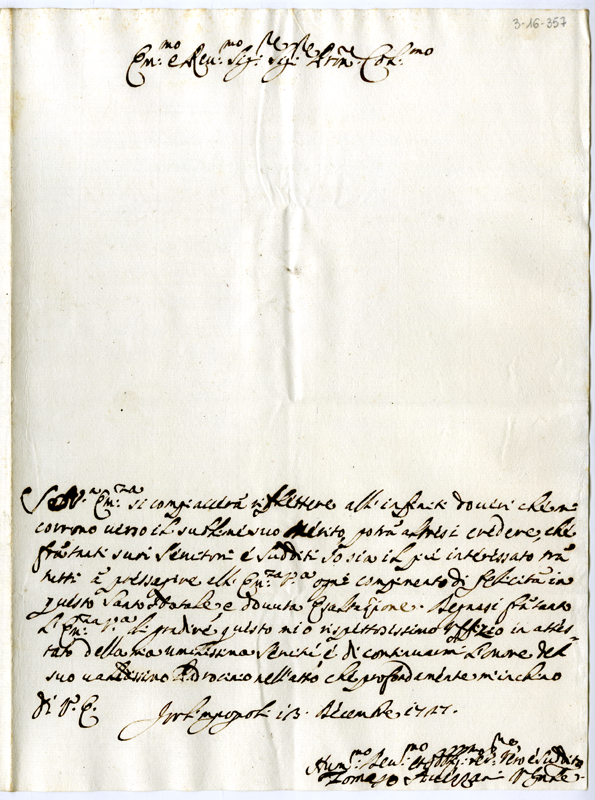 3-16-357
Em.mo e Reu.mo Sig.re Sig.re Prõn. Col.mo
Se V.a Em.za si compiacerà riflettere alli infiniti doueri che mi
corrono uerso il sublime suo Mérito, potrà altresi credere, che
frà tanti suoi Seruitori e Sudditi Io sia il più interessato trà
tutti à pressagire all' Em.za V.a ogni compimento di felicità in
questo Santo Natale, e douuta Essaltazione. Degnasi frà tanto
L' Em.za V.a di gradire questo mio rispettosissimo Offizio in attes-
tato della mia umilissima Seruitù e di continuarmi sempre del
suo ualidissimo Padrocinio nell'atto che profondamente m'inchino
Di V. E.
Forlimpopoli i3. Décembre 1727.
Hum.mo Deu.mo Obblig.mo Ser.re Vero e Suddito
Tomaso